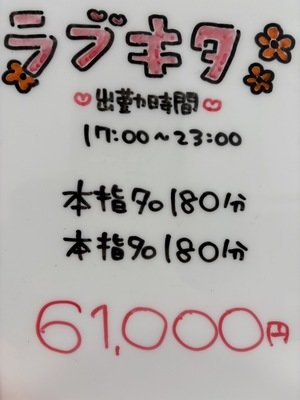 ラブキタ
出勤時間
17:00~23:00
本指70180分
本指90180分
61,000円